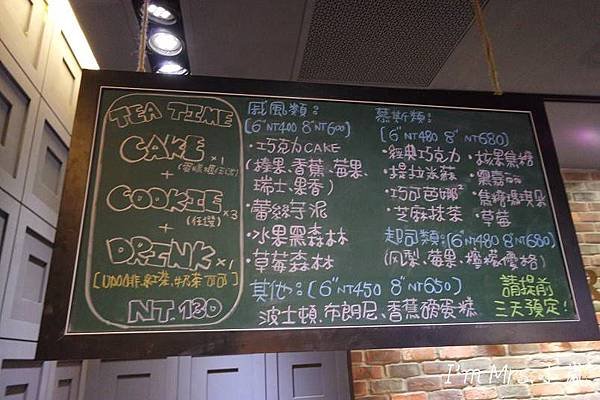 TEA TIME
CAKE×1
+
COOKIE×3
(任選)
+
DRINK×1
NT.180
戚風類：
(6"NT400 8"NT600)
·巧克力CAKE
(榛果、香蕉、莓果、
瑞士、果香)
·蕾絲芋泥
·水果黑森林
·草莓森林
其他：(6"NT450 8"NT650)
波士頓、布朗尼、香蕉磅蛋糕
慕斯類：
(6"NT480 8"NT680)
·經典巧克力
·提拉米蘇
·巧可芭娜²
·芝麻抹茶
·核果焦糖
·黑嘉麗
·焦糖瑪琪朵
·草莓
起司類：(6"NT480 8"NT680)
(原梨、莓果、檸檬優格)
請提前
三天預定！
I'm Mrs.